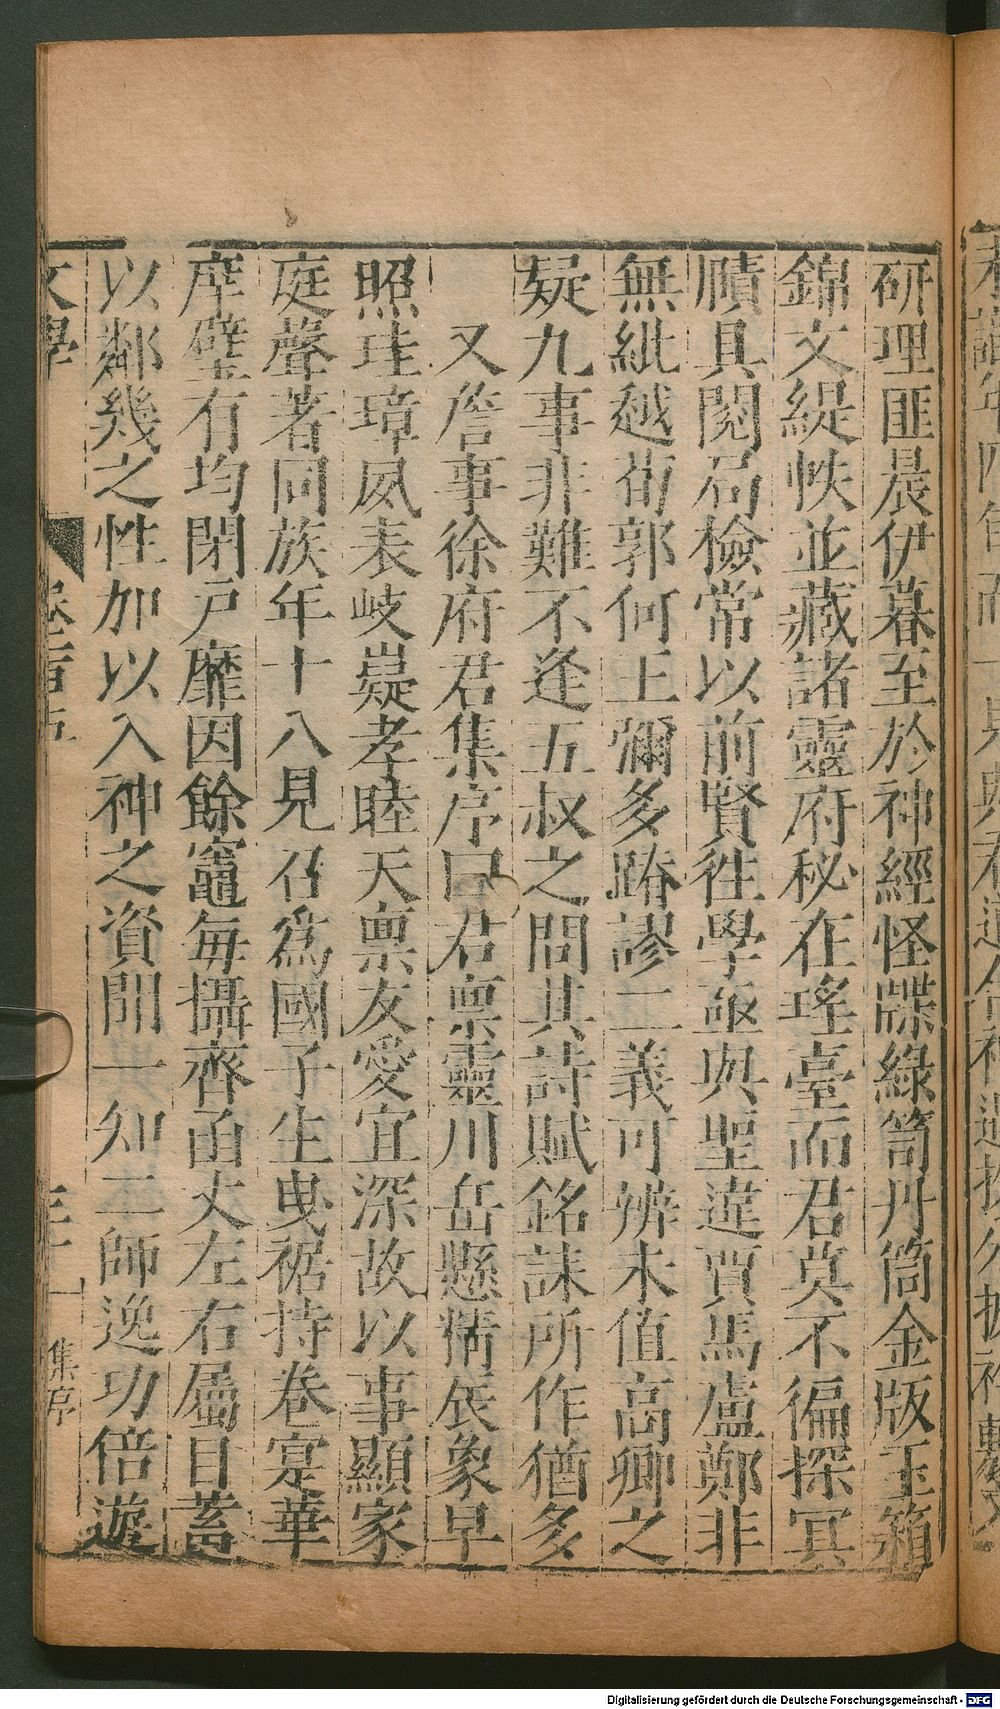 研理匪晨伊暮至於神經怪牒綠笥丹筒金版玉箱
錦文緹帙並藏諸靈府秘在瑤臺而君莫不徧探冥
賾具閱局檢常以前賢徃學亟與聖違賈馬盧鄭非
無紕越荀郭何王彌多踳謬二義可辨未值高卿之
疑九事非難不逢五叔之問其詩賦銘誄所作猶多
又詹事徐府君集序曰君禀靈川岳懸精辰象早
照珪璋夙表岐嶷孝睦天禀友愛宜深故以事顯家
庭聲著同族年十八見召爲國子生曳裾持卷寔華
庠璧有均閉戸靡因餘竈每攝齊函丈左右屬目蓄
以鄰幾之性加以入神之資聞一知二師逸功倍遊
文學
集序
Digitalisierung gefördert durch die Deutsche Forschungsgemeinschaft - DFG